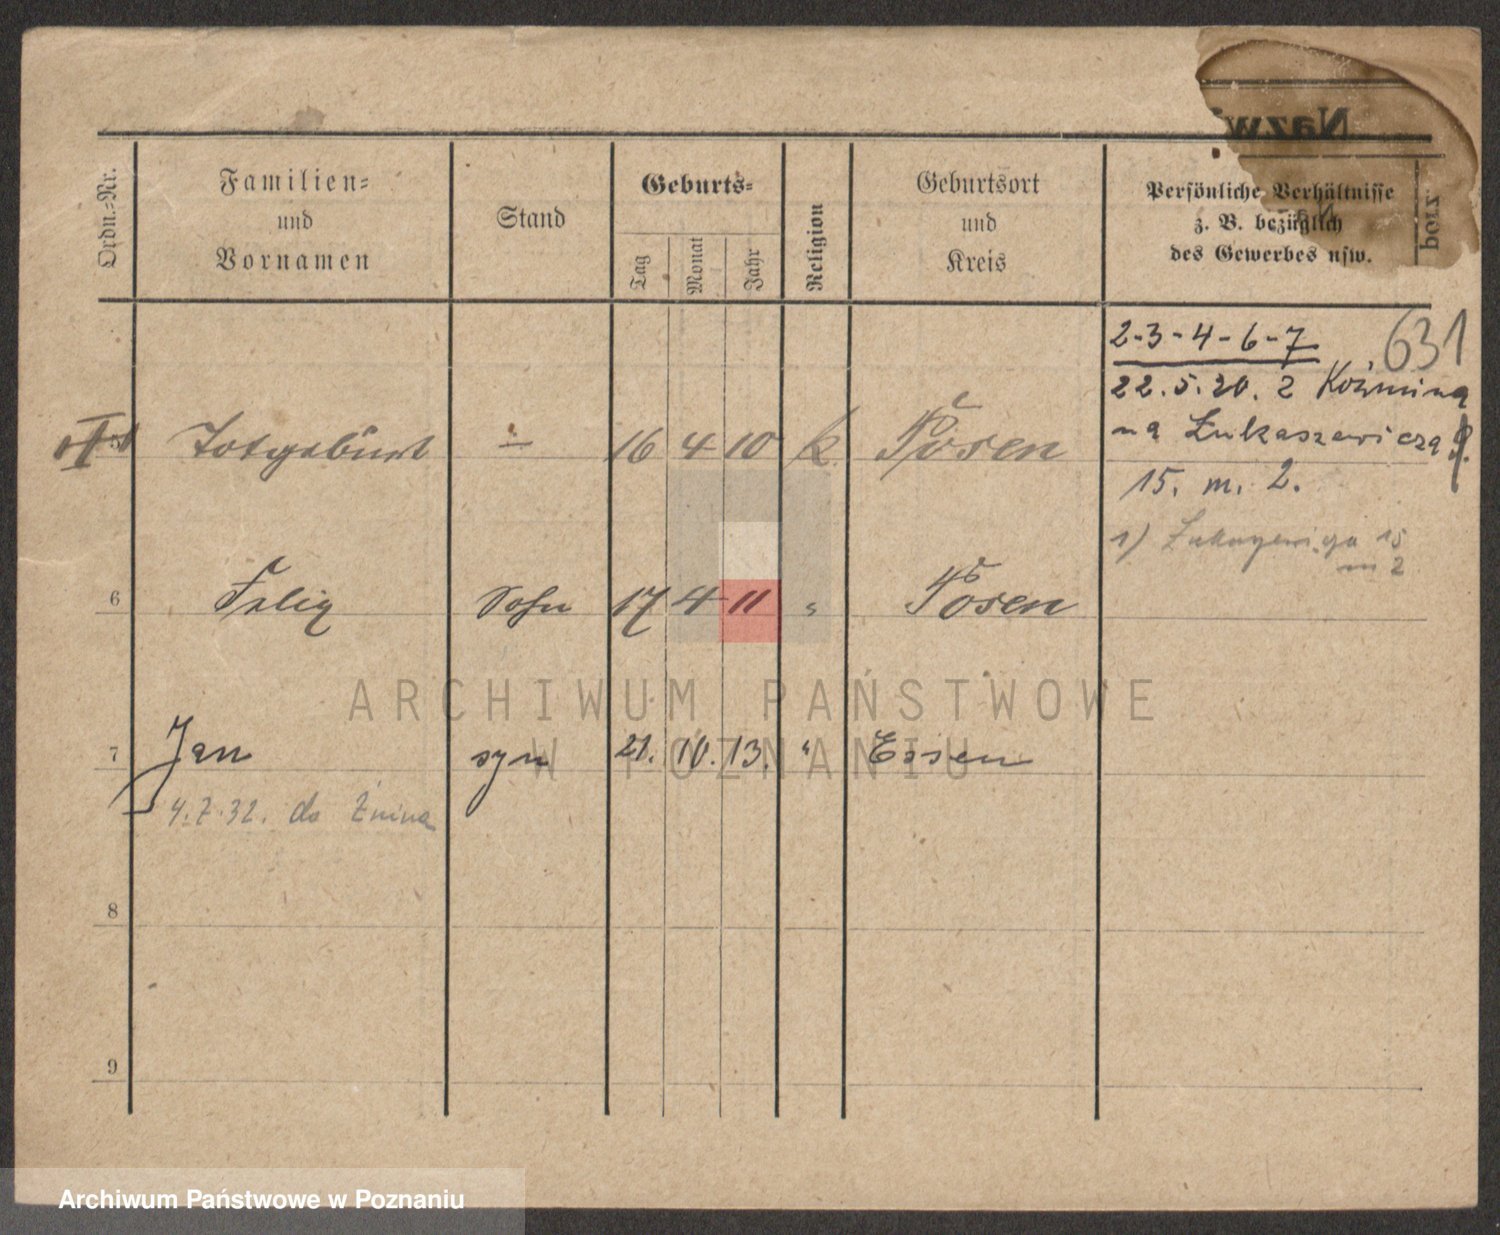 Nazw
Ordn.-Nr.
Familien-
und
Vornamen
Stand
Geburts-
Tag
Monat
Jahr
Religion
Geburtsort
und
Kreis
Persönliche Verhältnisse
z. B. bezüglich
des Gewerbes usw.
631
2-3-4-6-7
22.5.20. z Koźmina
na Łukaszewicza
15. m. 2.
Totgeburt — 16 4 10 k. Posen
1) 15
m 2
6 Felix Sohn 17 4 11 " Posen
ARCHIWUM PAŃSTWOWE
W POZNANIU
7 Jan syn 21. 10. 13. " Essen
4.7.32. do Żnina
8
9
Archiwum Państwowe w Poznaniu